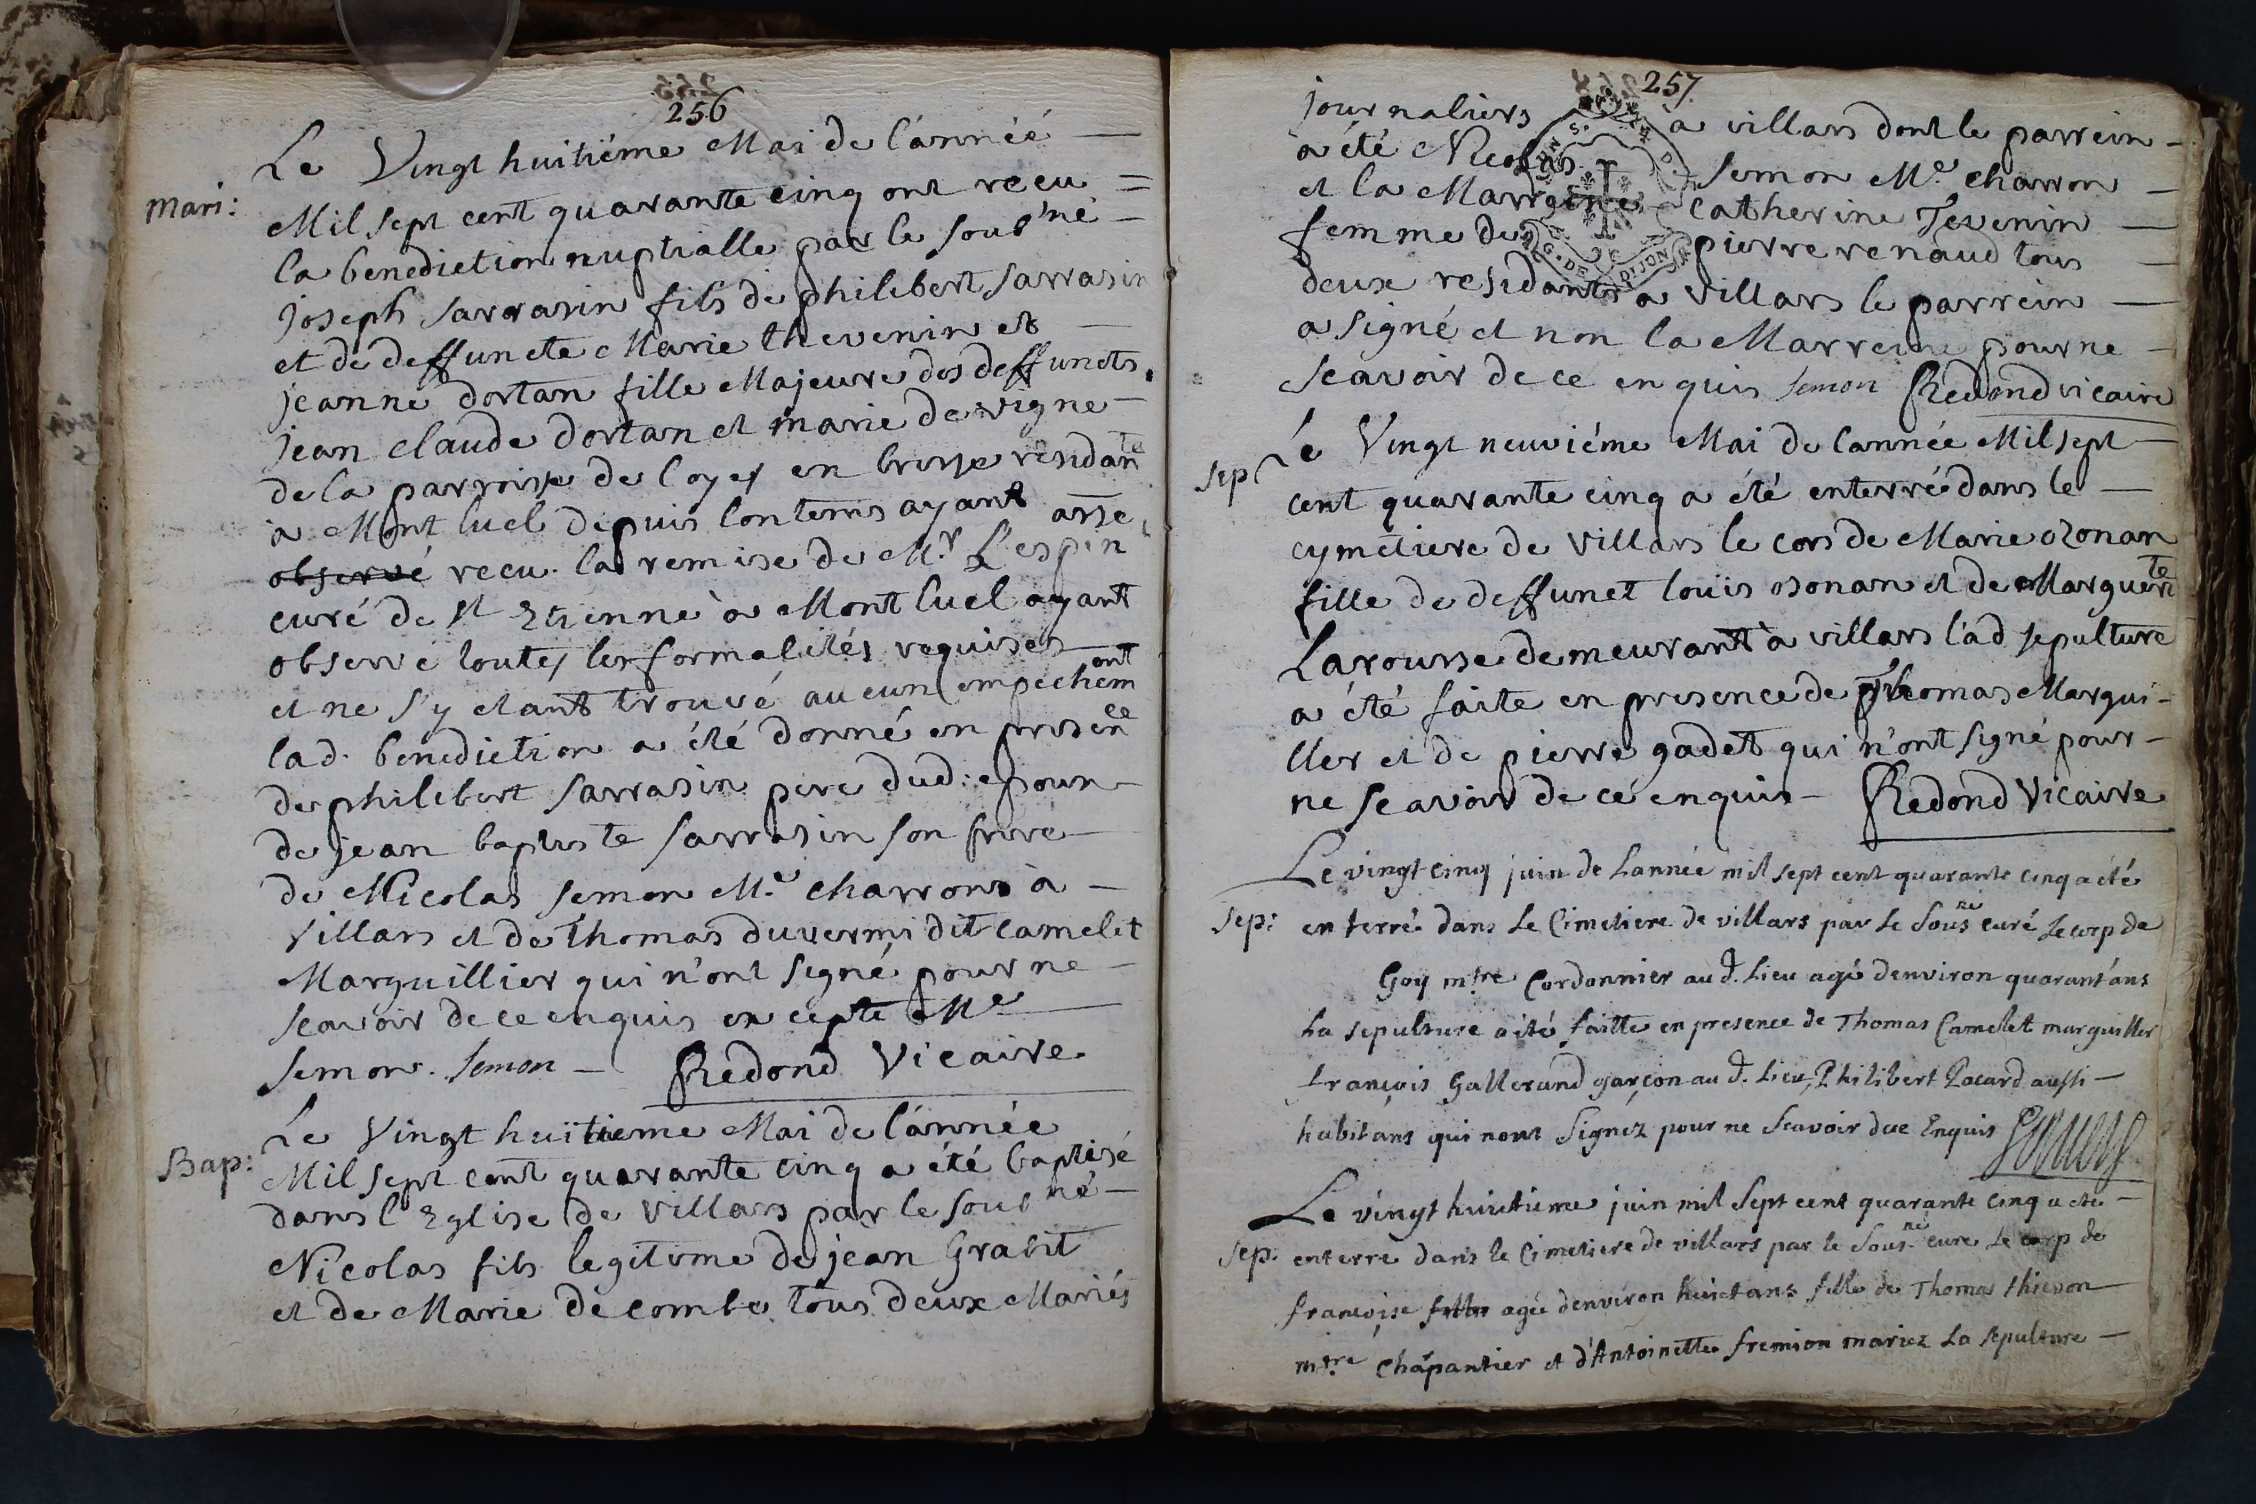 256
Le Vingt huitiéme Mai de l'année
Mari:
Mil sept cent quarante cinq ont recu
la benediction nuptialle par le sous né
joseph sarrasin fils de philibert sarrasin
et de deffuncte Marie thevenin et
jeanne dortan fille Majeure des deffuncts
jean claude dortan et marie de vigne
de la parroisse de loyes en bresse residante
à Mont luel depuis lontems ayant
observé recu la remise de Mr L'espin
curé de st Etienne à Mont luel ayant
observé toutes les formalités requises
et ne s'y etant trouvé aucun empechement
lad. benediction a été donné en presence
de philibert sarrasin pere dud: epoux
de jean baptiste sarrasin son frere
de Nicolas semon Me charrons à
villars et de Thomas duvermi dit camelet
Marguillier qui n'ont signé pour ne
scavoir de ce enquis excepte Me
semon. semon Redond Vicaire
Le Vingt huitieme Mai de l'année
Bap:
Mil sept cent quarante cinq a été baptisé
dans l'Eglise de villars par le sous né
Nicolas fils legitime de jean Grabit
et de Marie decombe tous deux Mariés
257
journaliers a villars dont le parrein
a été Nicolas semon Me charron
et la Marreine Catherine Tevenin
femme de pierre renaud tous
deux residants a villars le parrein
a signé et non la Marreine pour ne
scavoir de ce enquis semon Redond vicaire
Le Vingt neuviéme Mai de l'année Mil sept
sep
cent quarante cinq a été enterré dans le
cymetiere de villars le cors de Marie ozonan
fille de deffunct louis osonan et de Marguerite
Larousse demeurant à villars l'ad sepulture
a été faite en presence de Thomas Margui-
ller et de pierre gadet qui n'ont signé pour
ne scavoir de ce enquis Redond Vicaire
Le vingt cinq juin de Lannée mil sept cent quarante cinq a été
sep: enterré dans le Cimetiere de villars par le Sousne curé le corp de
Goy mtre Cordonnier au d. Lieu agé denviron quarant'ans
La sepulture a été faitte en presence de Thomas Camelet marguiller
François Gallerand garçon au d. Lieu, Philibert Pacard aussi
habitans qui nont Signéz pour ne Scavoir due Enquis
Le vingt huictieme juin mil Sept cent quarante cinq a eté
sep: enterré dans le Cimetiere de villars par le Sousne curé le corp de
francoise fille agée denviron huict ans fille de Thomas thievon
mtre Chapantier et d'Antoinette fremion mariez La sepulture